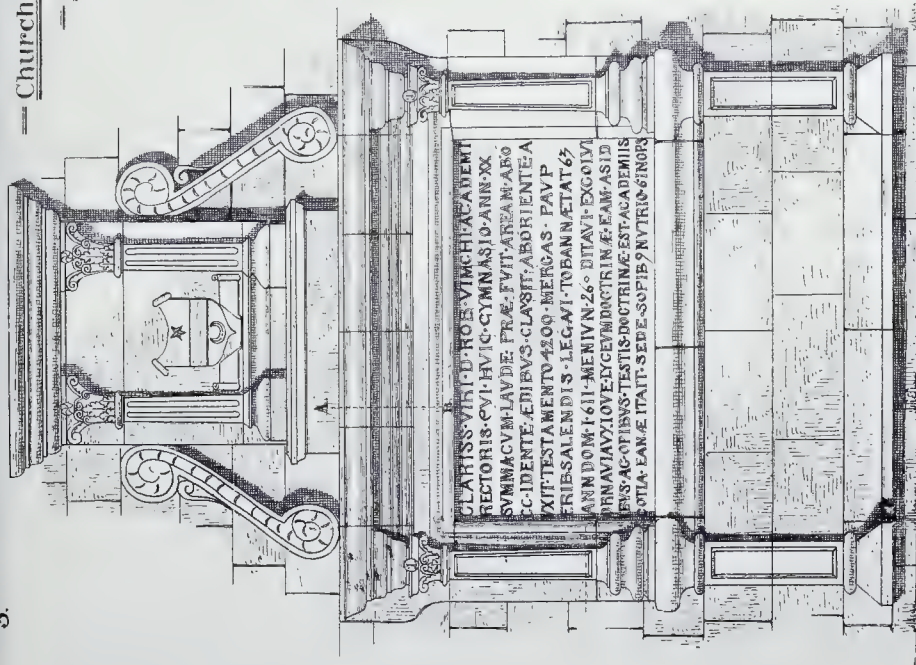 Church
3.
A
B
CLARISS·VIRI·D·ROB·VIMCHI·ACADEMI
RECTORIS·CVI·HVIC·GYMNASIO·ANN·XX
SVMMACVM·LAVDE·PRÆ·FVIT·AREAM·ABO
CC·IDENTE·ÆDIBVS·CLAVSIT·ABORIENTE·A
VXIT·TESTAMENTO·4200·MERCAS·PAVP
ERIB·SALENDIS·LEGAVI·TOBANNÆTAT 63
ANNDOM·1·611·MENIVN·26° DITAVI·EXCOLVI
ORNAVIAVXI·OVE·LYCEVMDOCTRINÆ·EAM·ASID
EVS·AC·OPIBVS·TESTIS·DOCTRINÆ·EST·ACADEMIIS
COTIA·EANÆ ITAIT·SEDE·SOPIB9NVTRIO·6INOPS